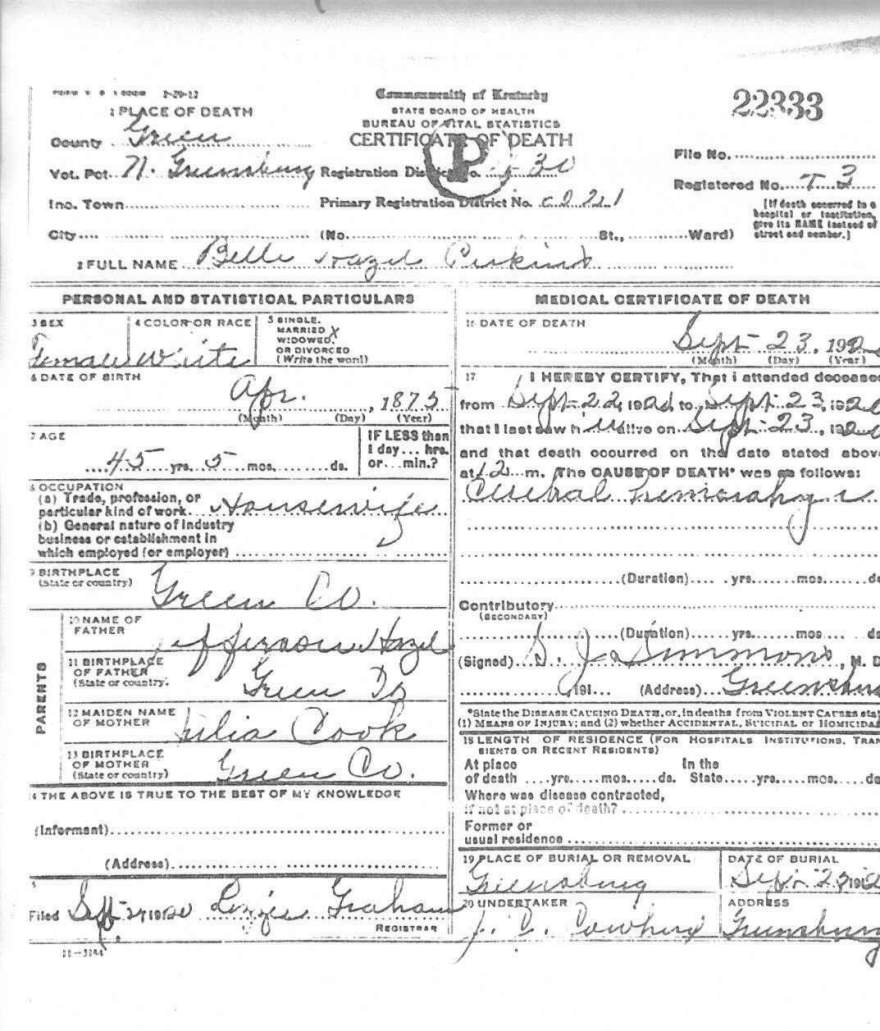 2-20-12 Commonwealth of Kentucky 22333
1 PLACE OF DEATH STATE BOARD OF HEALTH
BUREAU OF VITAL STATISTICS
County Green CERTIFICATE OF DEATH
P
File No.
Vot. Pct. N. Greensburg Registration District No. 30
Registered No. 3
Inc. Town Primary Registration District No.
[If death occurred in a hospital or institution, give its NAME instead of street and number.]
City (No. St., Ward)
2 FULL NAME Belle Hazel Perkins
PERSONAL AND STATISTICAL PARTICULARS
3 SEX 4 COLOR OR RACE 5 SINGLE, MARRIED X WIDOWED, OR DIVORCED (Write the word)
Female White
6 DATE OF BIRTH
Apr. , 1875
(Month) (Day) (Year)
7 AGE IF LESS than
45 yrs. 5 mos. ds. 1 day... hrs. or... min.?
8 OCCUPATION
(a) Trade, profession, or
particular kind of work Housewife
(b) General nature of industry
business or establishment in
which employed (or employer)
9 BIRTHPLACE
(State or country) Green Co.
PARENTS
10 NAME OF FATHER Jefferson Hazel
11 BIRTHPLACE OF FATHER (State or country) Green Co
12 MAIDEN NAME OF MOTHER Julia Cook
13 BIRTHPLACE OF MOTHER (State or country) Green Co.
14 THE ABOVE IS TRUE TO THE BEST OF MY KNOWLEDGE
(Informant)
(Address)
Filed Sept 1920 Lizzie Graham
REGISTRAR
11-3184
MEDICAL CERTIFICATE OF DEATH
16 DATE OF DEATH
Sept 23, 192
(Month) (Day) (Year)
17 I HEREBY CERTIFY, That I attended deceased
from Sept 22, 192 to Sept 23, 1920
that I last saw h alive on Sept 23, 192
and that death occurred on the date stated above
at 12 m. The CAUSE OF DEATH* was as follows:
(Duration) yrs. mos. ds
Contributory
(SECONDARY)
(Duration) yrs. mos. ds
(Signed) S. J. Simmons, M. D
191 (Address) Greensburg
*State the DISEASE CAUSING DEATH, or, in deaths from VIOLENT CAUSES stat
(1) MEANS OF INJURY; and (2) whether ACCIDENTAL, SUICIDAL or HOMICIDAL
18 LENGTH OF RESIDENCE (FOR HOSPITALS INSTITUTIONS, TRAN
SIENTS OR RECENT RESIDENTS)
At place In the
of death yrs. mos. ds. State yrs. mos. ds
Where was disease contracted,
if not at place of death?
Former or
usual residence
19 PLACE OF BURIAL OR REMOVAL DATE OF BURIAL
Greensburg Sept
20 UNDERTAKER ADDRESS
J. C. Cowherd Greensburg